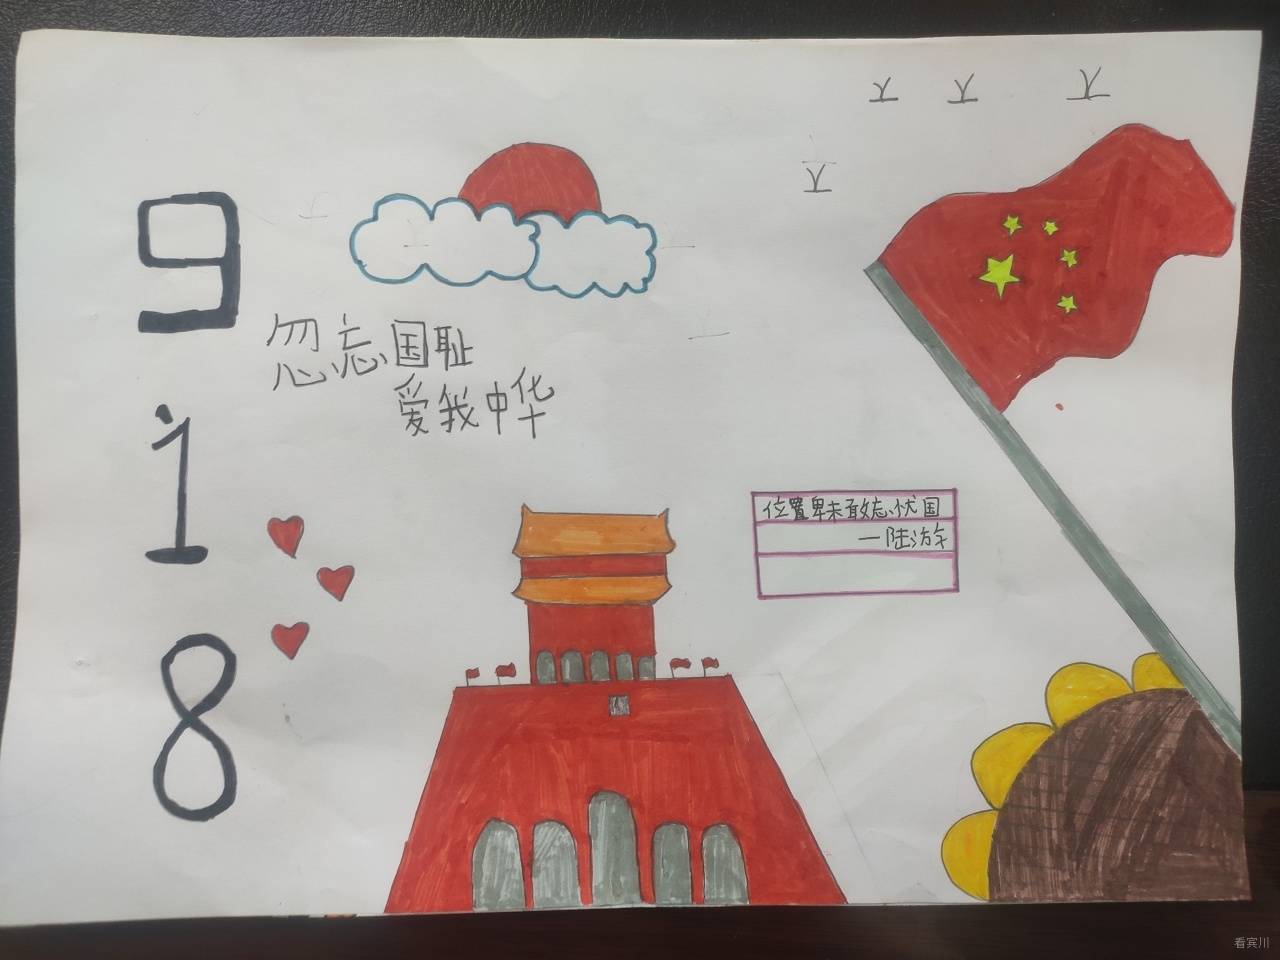 9
1
8
忽忘国耻
爱我中华
位置卑未敢忘忧国
—陆游
看宾川